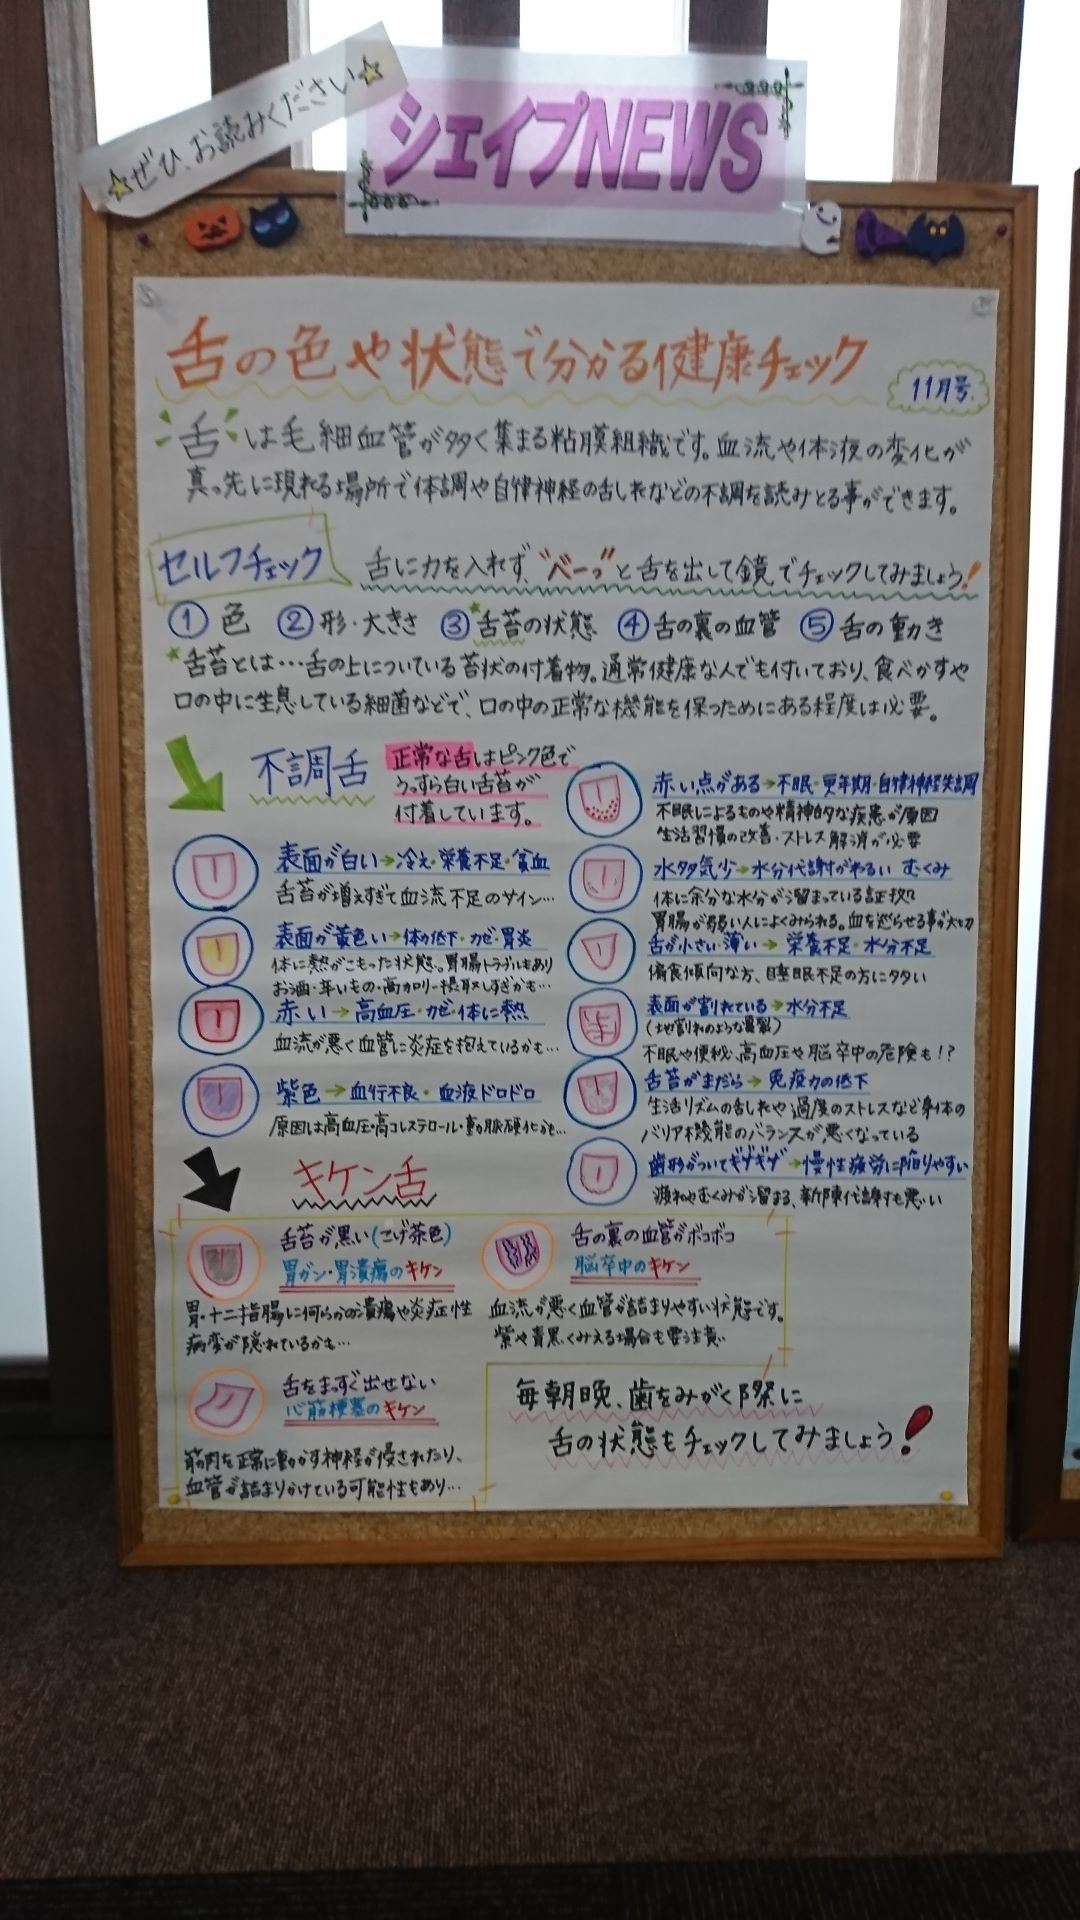 ☆ぜひ、お読みください☆
シェイプNEWS
舌の色や状態で分かる健康チェック
11月号.
舌は毛細血管が多く集まる粘膜組織です。血流や体液の変化が
真っ先に現れる場所で体調や自律神経の乱れなどの不調を読みとる事ができます。
セルフチェック
舌に力を入れず、"べーっ"と舌を出して鏡でチェックしてみましょう!
① 色 ② 形・大きさ ③ 舌苔の状態 ④ 舌の裏の血管 ⑤ 舌の動き
*舌苔とは…舌の上についている苔状の付着物。通常健康な人でも付いており、食べかすや
口の中に生息している細菌などで、口の中の正常な機能を保つためにある程度は必要。
不調舌
正常な舌はピンク色で
うっすら白い舌苔が
付着しています。
表面が白い→冷え・栄養不足・貧血
舌苔が増えすぎて血流不足のサイン…
表面が黄色い→体力低下・カゼ・胃炎
体に熱がこもった状態。胃腸トラブルもあり
お酒・辛いもの・高カロリー摂取しすぎかも…
赤い→高血圧・カゼ・体に熱
血流が悪く血管に炎症を抱えているかも…
紫色→血行不良・血液ドロドロ
原因は高血圧・高コレステロール・動脈硬化かも…
赤い点がある→不眠・更年期・自律神経失調
不眠によるものや精神的な疾患が原因
生活習慣の改善・ストレス解消が必要
水多気少→水分代謝がわるい むくみ
体に余分な水分が溜まっている証拠
胃腸が弱い人によくみられる。血を巡らせる事が大切
舌が小さい・薄い→栄養不足・水分不足
偏食傾向な方、睡眠不足の方に多い
表面が割れている→水分不足
(地割れのような亀裂)
不眠や便秘、高血圧や脳卒中の危険も!?
舌苔がまだら→免疫力の低下
生活リズムの乱れや過度のストレスなど身体の
バリア機能のバランスが悪くなっている
歯形がついてギザギザ→慢性疲労に陥りやすい
疲れやむくみが溜まる、新陳代謝も悪い
キケン舌
舌苔が黒い(こげ茶色)
胃ガン・胃潰瘍のキケン
胃・十二指腸に何らかの潰瘍や炎症性
病変が隠れているかも…
舌の裏の血管がボコボコ
脳卒中のキケン
血流が悪く血管が詰まりやすい状態です。
紫や青黒くみえる場合も要注意
舌をまっすぐ出せない
心筋梗塞のキケン
筋肉を正常に動かす神経が侵されたり、
血管が詰まりかけている可能性もあり…
毎朝晩、歯をみがく際に
舌の状態もチェックしてみましょう!